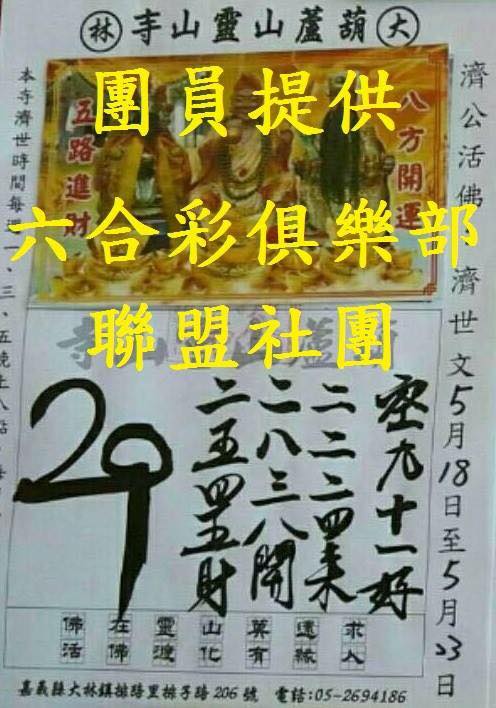 大 葫蘆山靈山寺 林
八方開運
五路進財
團員提供
六合彩俱樂部
聯盟社團
濟公活佛 濟世文5月18日至5月23日
空九十一好
二二二四來
二八三八開
二五四五財
29
本寺濟世時間每週一、三、五晚上八點
佛在靈山莫遠求
活佛渡化有緣人
嘉義縣大林鎮排路里排子路206號 電話:05-2694186